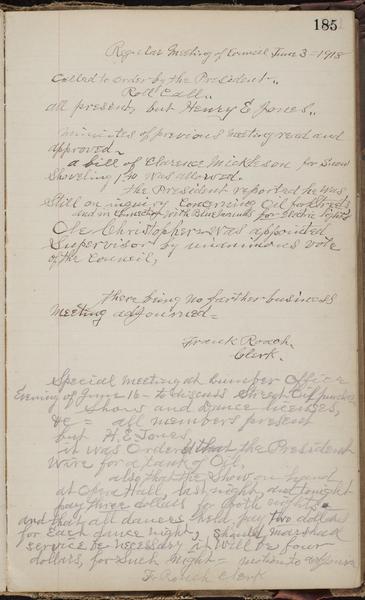 185
Regular Meeting of Council June 3 - 1918
Called to order by the President..
Roll Call..
all present, but Henry E Jones..
Minuites of previous meeting read and
approved -
a bill of Clarence Mickleson for Snow
Shoveling, was allowed.
The President reported he was
Still on inquiry Concerning Oil for Streets
and in with Blue for Electric lights
Ole Christopher was appointed
Supervisor by unanimous vote
of the Council,
there being no farther business
Meeting adjourned =
Frank Roach.
Clerk.
Special meeting at Lumber Office
Evening of June 16 - to discuss Street Oil
Shows and dance licenses,
&c = all members present
but H. E. Jones,
it was Ordered that the President
Wire for a tank of Oil,
also that the Show on hand
at Opra Hall, last night, and tonight
pay three dollars for both nights -
and that all dances held, pay two dollars
for Each dance night, should marshals
service be necessary it will be four
dollars, for Such Night = motion to adjourn
F. Roach Clerk